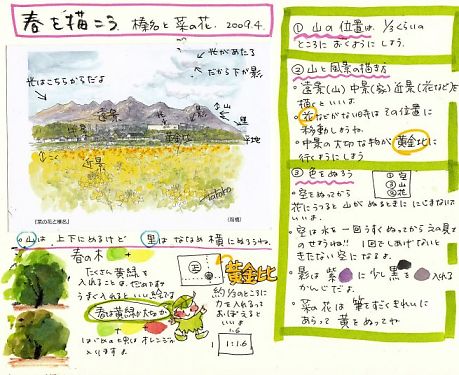 春を描こう. 榛名と菜の花. 2009.4.
光があたる
だから下が影
光はこちらからだよ
遠景
中景
近景
黄金比
山
里
平地
『菜の花と榛名』
○山は上下にぬるけど
○里はななめ横にぬろうね.
春の木
たくさん黄緑を
うすく入れるといい
春は黄緑が大切かな
はじめの土色はオレンジの
入ります.
黄金比
約1/3のところに
力を入れるって
おぼえると
いいよ
1:1.6
① 山の位置は. 1/3くらいの
ところにおくようにしよう.
② 山と風景の描き方
・遠景(山)中景(家)近景(花など)を
描くといいよ
・花などがない時はその位置に
移動しようね.
・中景の大切な物が黄金比に
行くようにしよう
③ 色をぬろう
① 空
② 山
③ 花
・空をぬってから
花にうつると山がぬるときににじまないよ
いいよ.
・空は水を一回うすくぬってから
のせようね!! 1回でしあげないと
きたない空になるよ.
・影は紫に少し黒を入れる
かんじだよ.
・菜の花は筆をすごくきれいに
あらって黄をぬってね